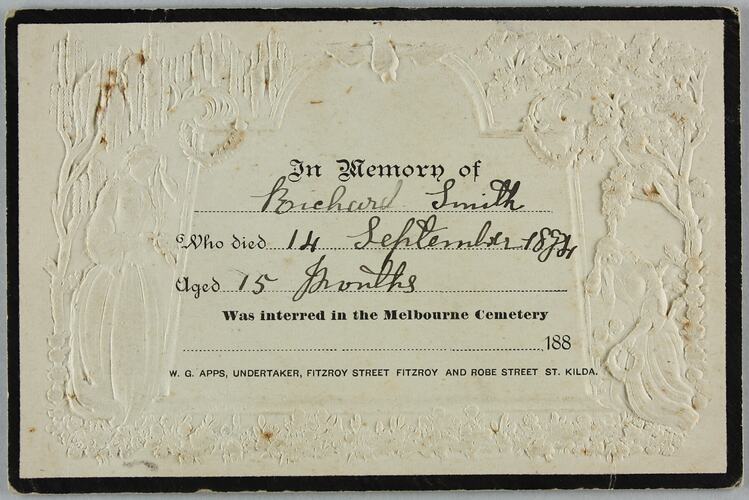 In Memory of
Richard Smith
Who died 14 September 1874
Aged 15 Months
Was interred in the Melbourne Cemetery
188
W. G. APPS, UNDERTAKER, FITZROY STREET FITZROY AND ROBE STREET ST. KILDA.